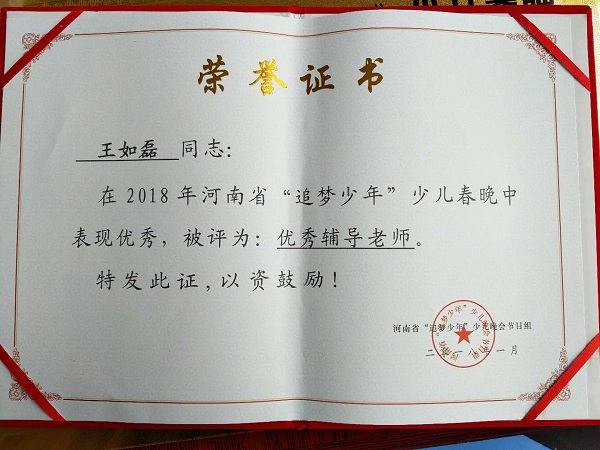 荣誉证书
王如磊 同志：
在2018年河南省“追梦少年”少儿春晚中
表现优秀，被评为：优秀辅导老师。
特发此证，以资鼓励！
河南省“追梦少年”少儿晚会节目组
二〇一八年一月